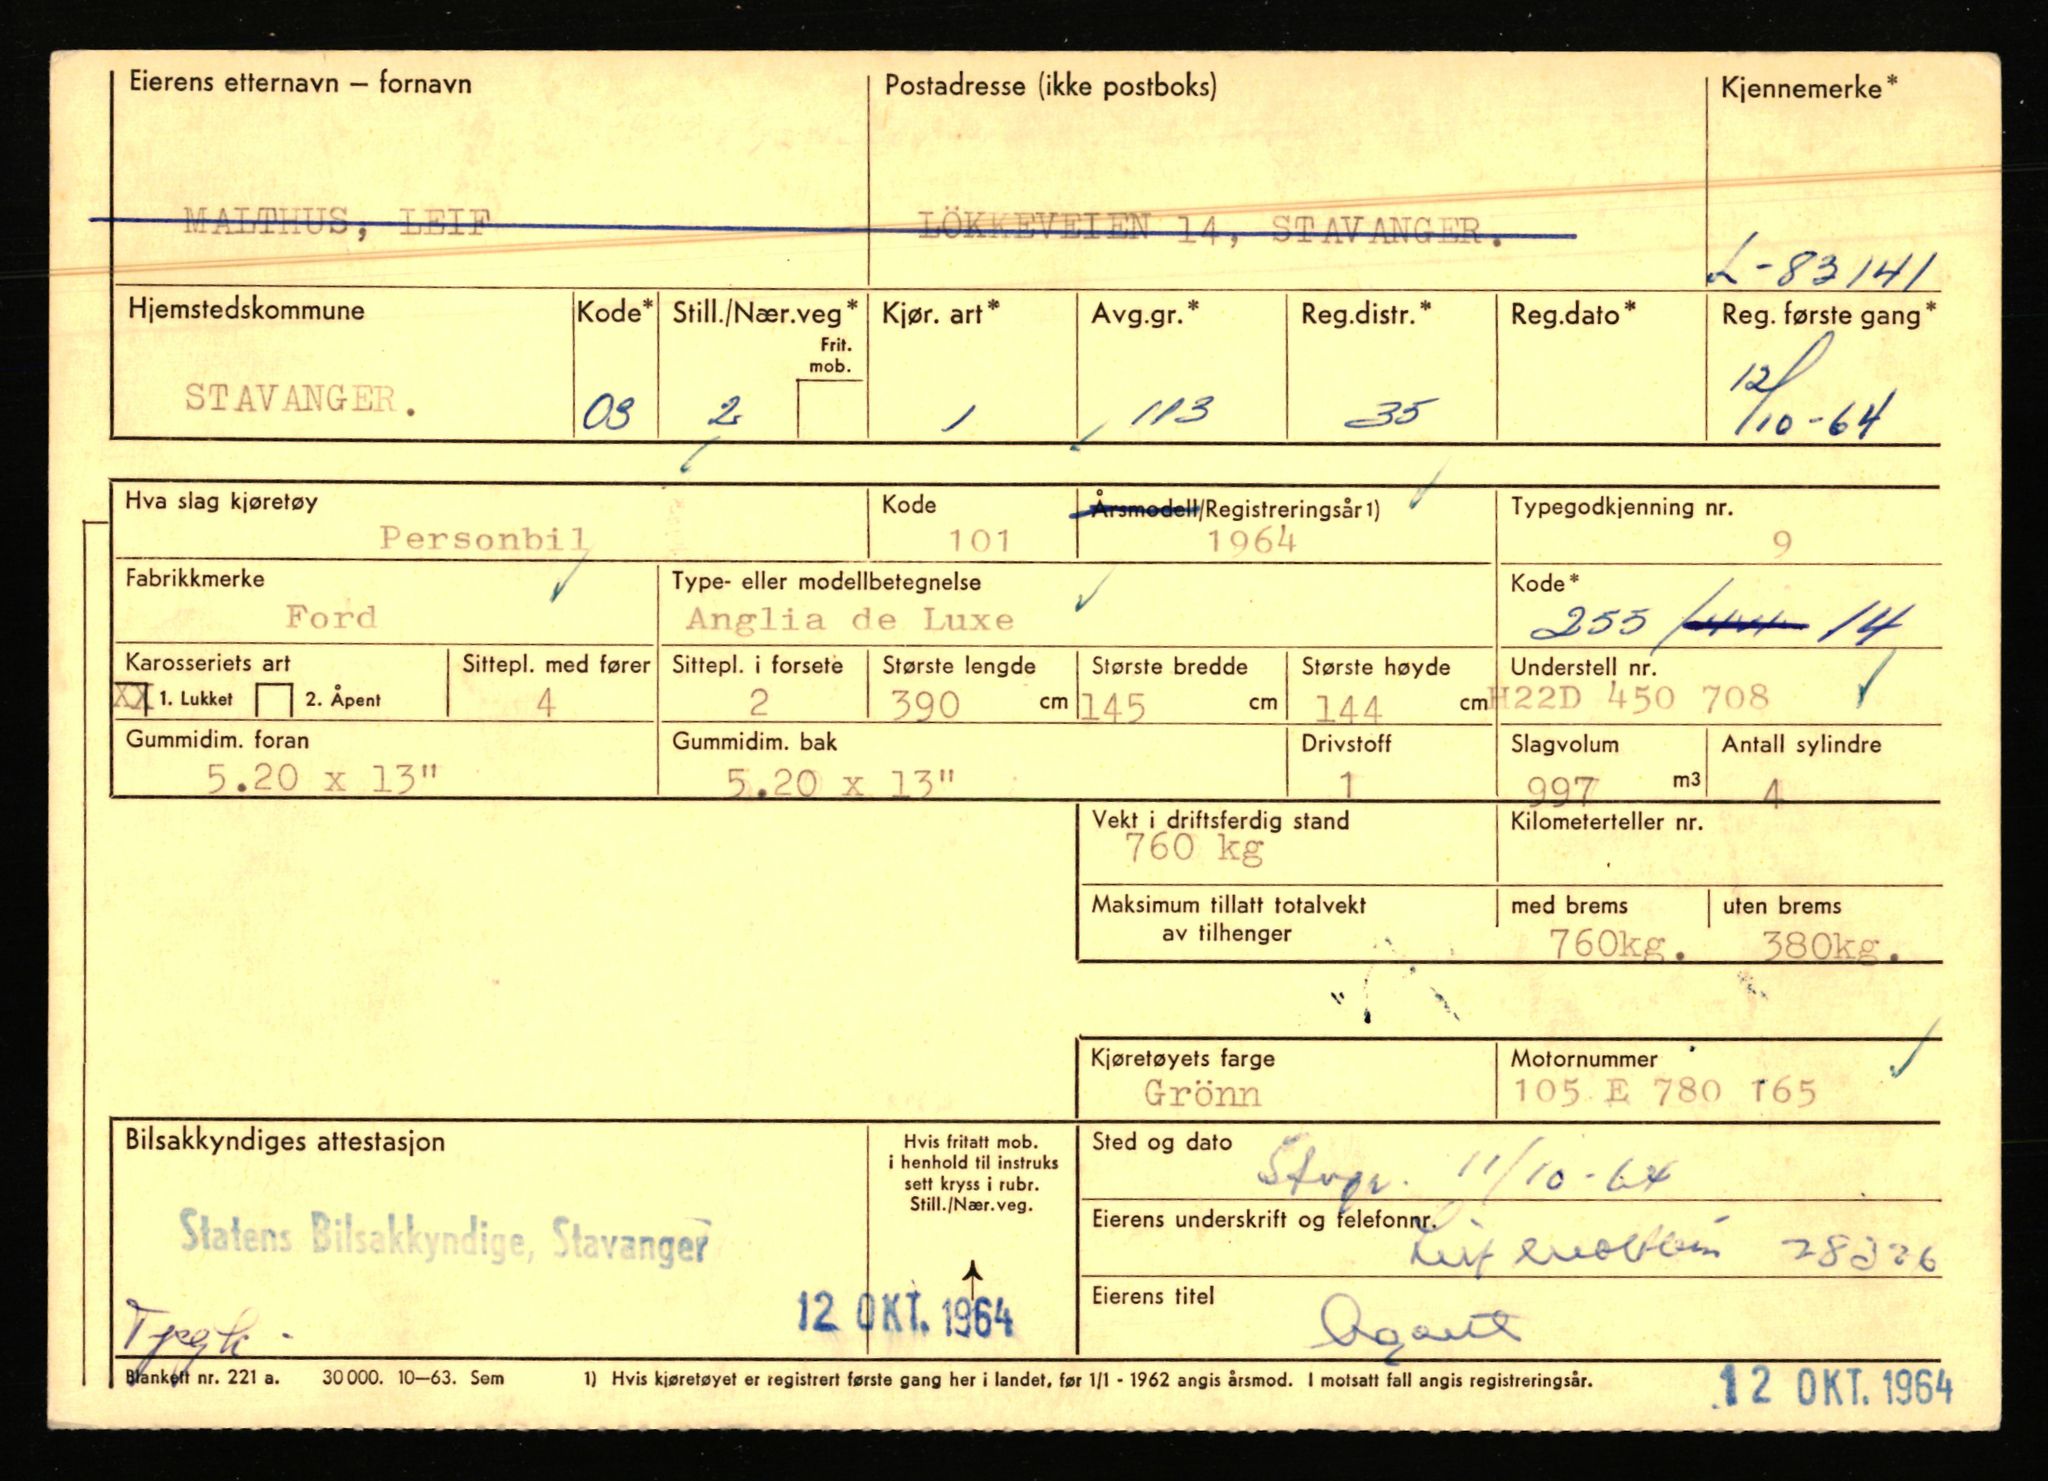 Eierens etternavn – fornavn Postadresse (ikke postboks) Kjennemerke*
MALTHUS, LEIF LÖKKEVEIEN 14, STAVANGER.
L-83141
Hjemstedskommune Kode* Still./Nær.veg* Kjør. art* Avg.gr.* Reg.distr.* Reg.dato* Reg. første gang*
Frit.
mob.
STAVANGER. 03 2 1 113 35 12/10-64
Hva slag kjøretøy Kode Årsmodell/Registreringsår 1) Typegodkjenning nr.
Personbil 101 1964 9
Fabrikkmerke Type- eller modellbetegnelse Kode*
Ford Anglia de Luxe 255 / 14
Karosseriets art Sittepl. med fører Sittepl. i forsete Største lengde Største bredde Største høyde Understell nr.
XX 1. Lukket 2. Åpent 4 2 390 cm 145 cm 144 cm H22D 450 708
Gummidim. foran Gummidim. bak Drivstoff Slagvolum Antall sylindre
5.20 x 13" 5.20 x 13" 1 997 m3 4
Vekt i driftsferdig stand Kilometerteller nr.
760 kg
Maksimum tillatt totalvekt med brems uten brems
av tilhenger 760kg. 380kg.
Kjøretøyets farge Motornummer
Grönn 105 E 780 165
Bilsakkyndiges attestasjon Hvis fritatt mob.
i henhold til instruks
sett kryss i rubr.
Still./Nær.veg.
Sted og dato
Stvgr. 11/10-64
Statens Bilsakkyndige, Stavanger
Eierens underskrift og telefonnr.
Leif Malthus 28326
Eierens titel
Agent
12 OKT. 1964
Blankett nr. 221 a. 30000. 10–63. Sem 1) Hvis kjøretøyet er registrert første gang her i landet, før 1/1 - 1962 angis årsmod. I motsatt fall angis registreringsår.
12 OKT. 1964